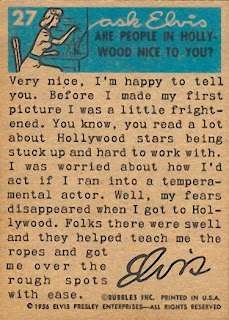 27
ask Elvis
ARE PEOPLE IN HOLLY-
WOOD NICE TO YOU?
Very nice, I'm happy to tell
you. Before I made my first
picture I was a little fright-
ened. You know, you read a lot
about Hollywood stars being
stuck up and hard to work with.
I was worried about how I'd
act if I ran into a tempera-
mental actor. Well, my fears
disappeared when I got to Hol-
lywood. Folks there were swell
and they helped teach me the
ropes and got
me over the
rough spots
with ease.
Elvis
©BUBBLES INC. PRINTED IN U.S.A.
©1956 ELVIS PRESLEY ENTERPRISES—ALL RIGHTS RESERVED